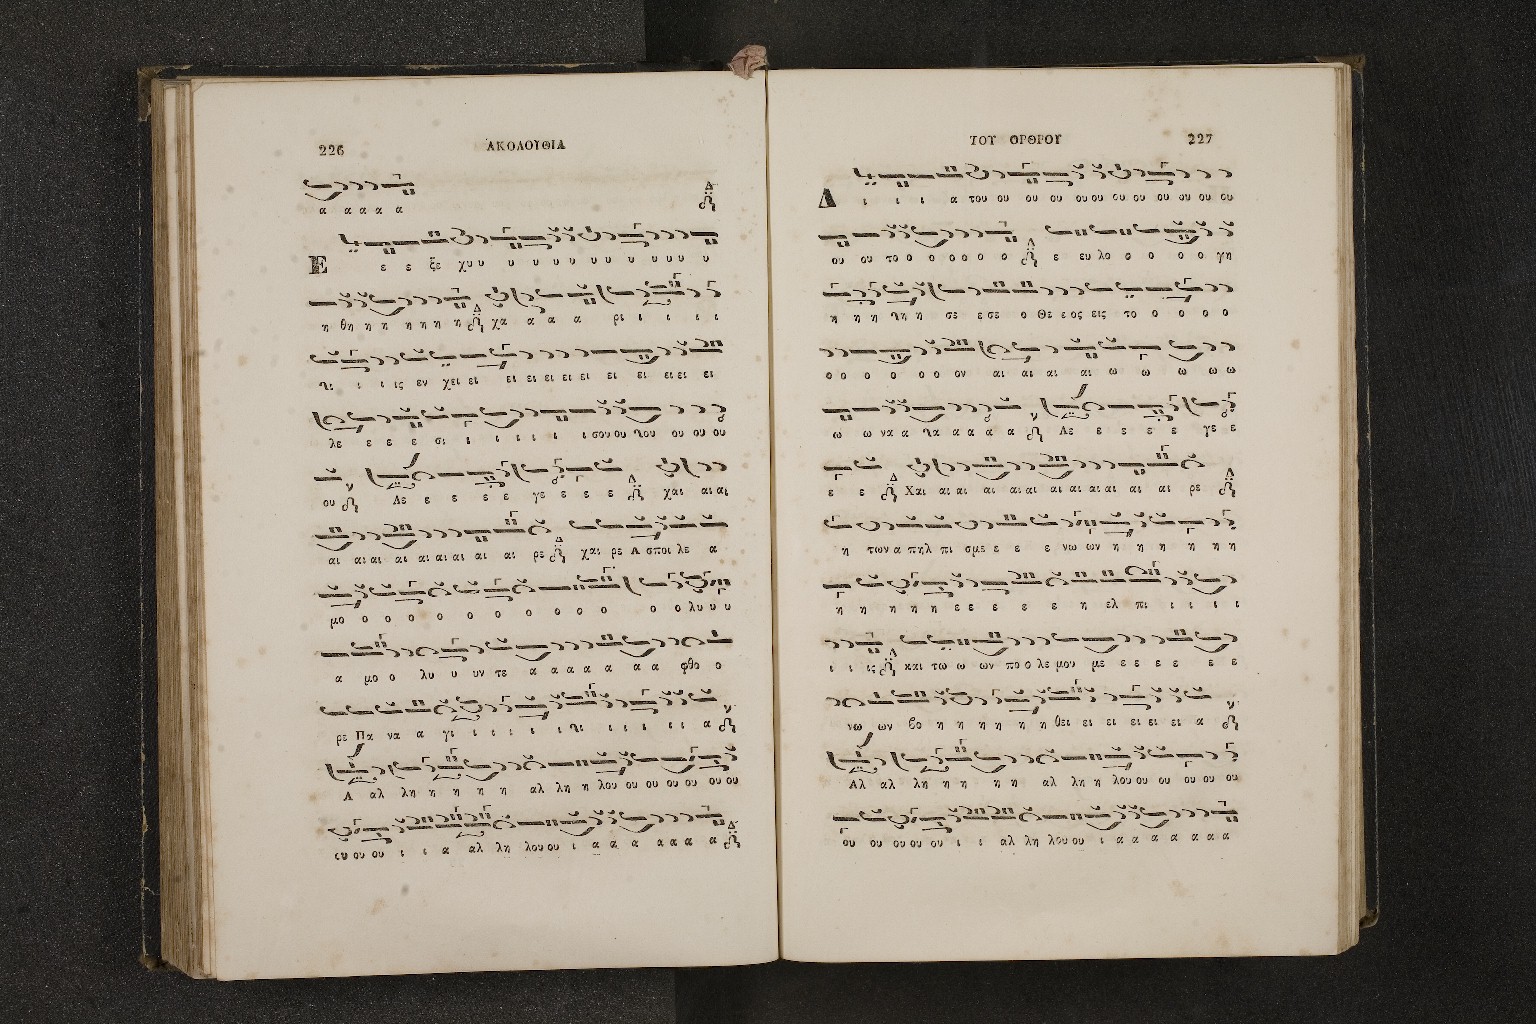 226
ΑΚΟΛΟΥΘΙΑ
α α α α α
Ε ε ε ξε χυ υ υ υ υ υ υ υ υ υ υ υ υ
η θη η η η η η η χα α α α α ρι ι ι ι ι
τι ι ι ις εν χει ει ει ει ει ει ει ει ει ει ει ει
λε ε ε ε ε σι ι ι ι ι ι ι ι σου ου του ου ου ου
ου Λε ε ε ε ε ε γε ε ε ε ε χαι αι αι
αι αι αι αι αι αι αι αι αι ρε χαι ρε Α σποι λε α
μο ο ο ο ο ο ο ο ο ο ο ο ο λυ υ υ
α μο ο λυ υ υν τε α α α α α α α φθο ο
ρε Πα να α γι ι ι ι ι ι τι ι ι ι ι ι α
Α αλ λη η η η η αλ λη η λου ου ου ου ου ου ου
ου ου ου ι ι α αλ λη λου ου ι α α α α α α α
ΤΟΥ ΟΡΘΡΟΥ
227
Δ ι ι ι α του ου ου ου ου ου ου ου ου ου ου ου ου ου
ου ου το ο ο ο ο ο ο ε ευ λο ο ο ο ο γη
η η η τη η σε ε σε ο Θε ε ος εις το ο ο ο ο
ο ο ο ο ο ο ο ον αι αι αι αι ω ω ω ω ω
ω ω να α τα α α α α Λε ε ε ε ε ε γε ε
ε ε Χαι αι αι αι αι αι αι αι αι αι αι αι ρε
η των α πηλ πι σμε ε ε ε νω ων η η η η η η
η η η η η ε ε ε ε ε ε η ελ πι ι ι ι ι
ι ι ις και τω ω ων πο ο λε μου με ε ε ε ε ε ε
νω ων βο η η η η η η θει ει ει ει ει ει ει α
Αλ αλ λη η η η η αλ λη η λου ου ου ου ου ου
ου ου ου ου ου ι ι αλ λη λου ου ι α α α α α α α